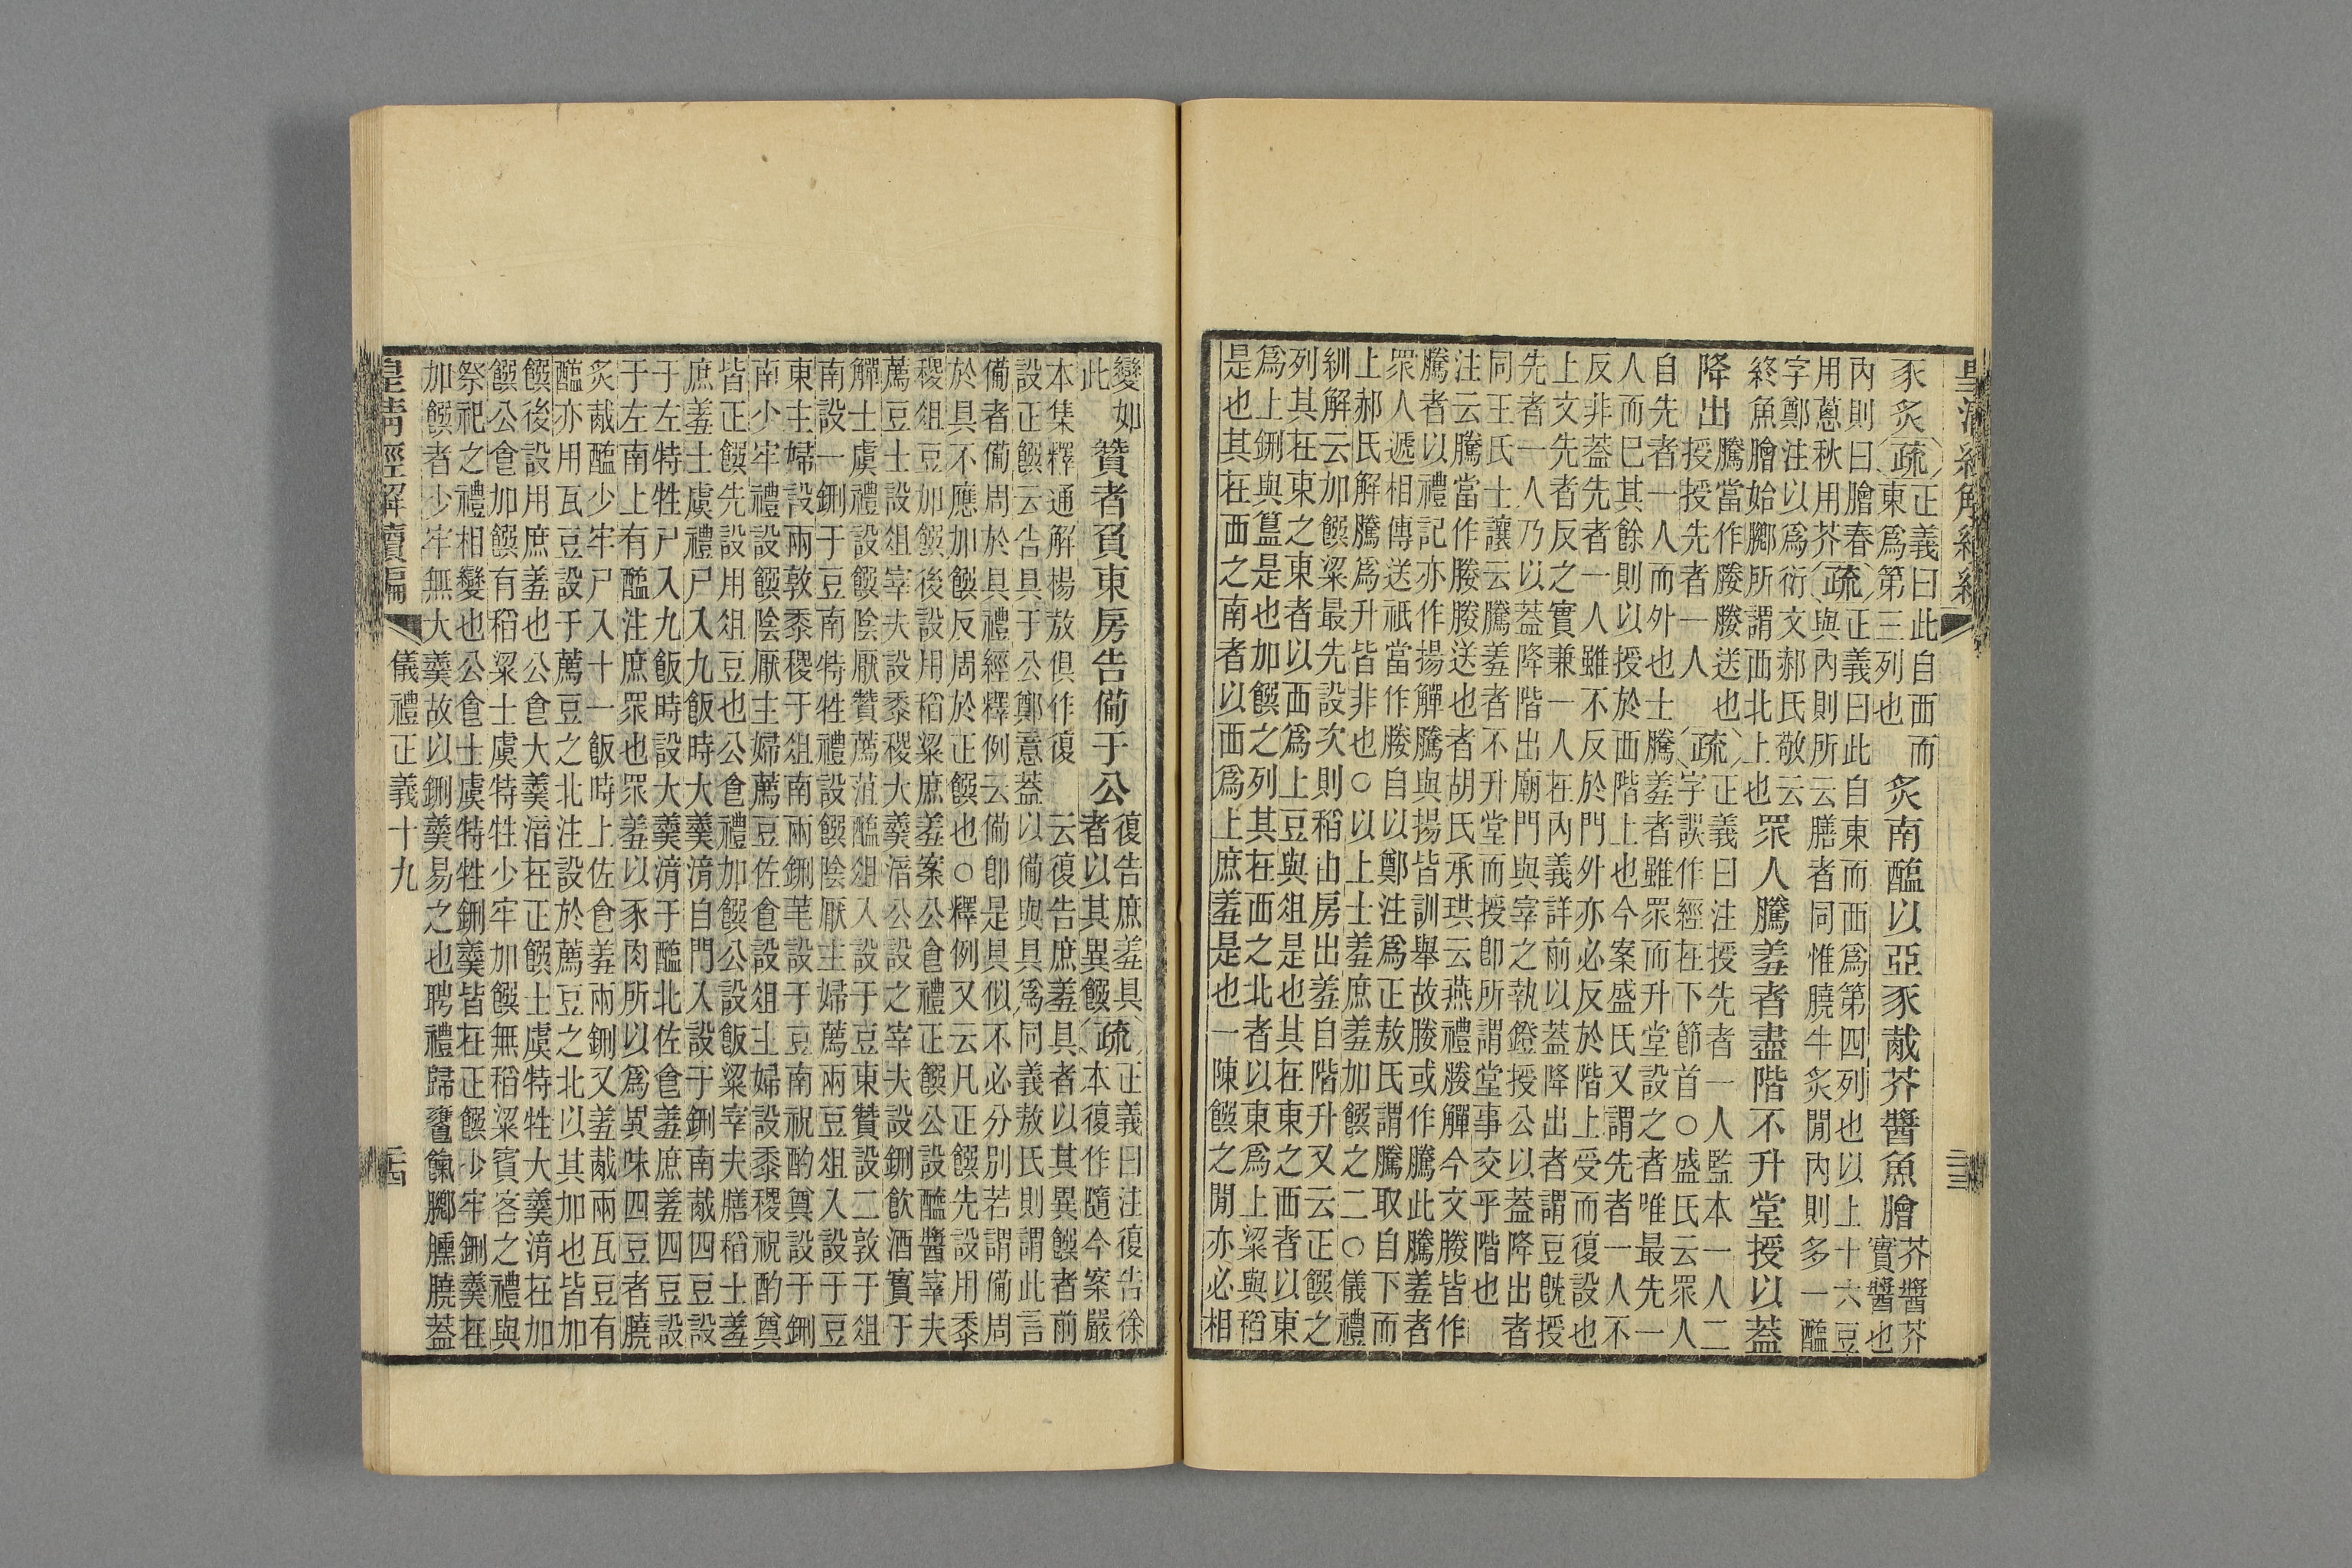 豕炙〔疏〕正義曰此自西而
東為第三列也
炙南醢以亞豕胾芥醬魚膾芥醬芥
實醬也
內則曰膾春
用蔥秋用芥〔疏〕正義曰此自東而西為第四列也以上十六豆
與內則所云膳者同惟膮牛炙閒內則多一醢
字鄭注以為衍文郝氏敬云
終魚膾始膷所謂西北上也
眾人騰羞者盡階不升堂授以蓋
降出騰當作媵媵送也
授授先者一人〔疏〕正義曰注授先者一人監本一人二
字誤作經在下節首○盛氏云眾人
自先者一人而外也士騰羞者雖眾而升堂設之者唯最先一
人而已其餘則以授於西階上也今案盛氏又謂先者一人不
反非蓋先者一人雖不反於門外亦必反於階上受而復設也
上文先者反之實兼一人在內義詳前以蓋降出者謂豆既授
先者一人乃以蓋降階出廟門與宰之執鐙授公以蓋降出者
同王氏士讓云騰羞者不升堂而授即所謂堂事交乎階也
注云騰當作媵媵送也者胡氏承珙云燕禮媵觶今文媵皆作
騰者以禮記亦作揚觶騰與揚皆訓舉故媵或作騰此騰羞者
眾人遞相傳送祇當作媵自以鄭注為正敖氏謂騰取自下而
上郝氏解騰為升皆非也○以上士羞庶羞加饌之二○儀禮
紃解云加饌粱最先設次則稻由房出羞自階升又云正饌之
列其在東之東者以西為上豆與俎是也其在東之西者以東
為上鉶與簋是也加饌之列其在西之北者以東為上粱與稻
是也其在西之南者以西為上庶羞是也一陳饌之閒亦必相
變如
此
贊者負東房告備于公復告庶羞具
者以其異饌〔疏〕正義曰注復告徐
本復作隨今案嚴
本集釋通解楊敖俱作復 云復告庶羞具者以其異饌者前
設正饌云告具于公鄭意蓋以備與具為同義敖氏則謂此言
備者備周於具禮經釋例云備即是具似不必分別若謂備周
於具不應加饌反周於正饌也○釋例又云凡正饌先設用黍
稷俎豆加饌後設用稻粱庶羞案公食禮正饌公設醯醬宰夫
薦豆士設俎宰夫設黍稷大羹湆公設之宰夫設鉶飲酒實于
觶士虞禮設饌陰厭贊薦菹醢俎入設于豆東贊設二敦于俎
南設一鉶于豆南特牲禮設饌陰厭主婦薦兩豆俎入設于豆
東主婦設兩敦黍稷于俎南兩鉶芼設于豆南祝酌奠設于鉶
南少牢禮設饌陰厭主婦薦豆佐食設俎主婦設黍稷祝酌奠
皆正饌先設用俎豆也公食禮加饌公設飯粱宰夫膳稻士羞
庶羞士虞禮尸入九飯時大羹湇自門入設于鉶南胾四豆設
于左特牲尸入九飯時設大羹湇于醢北佐食羞庶羞四豆設
于左南上有醢注庶眾也眾羞以豕肉所以為異味四豆者膮
炙胾醢少牢尸入十一飯時上佐食羞兩鉶又羞胾兩瓦豆有
醢亦用瓦豆設于薦豆之北注設於薦豆之北以其加也皆加
饌後設用庶羞也公食大羹湆在正饌士虞特牲大羹湇在加
饌公食加饌有稻粱士虞特牲少牢加饌無稻粱賓客之禮與
祭祀之禮相變也公食士虞特牲鉶羹皆在正饌少牢鉶羹在
加饌者少牢無大羹故以鉶羹易之也聘禮歸饔餼膷臐膮蓋
皇清經解續編 儀禮正義十九